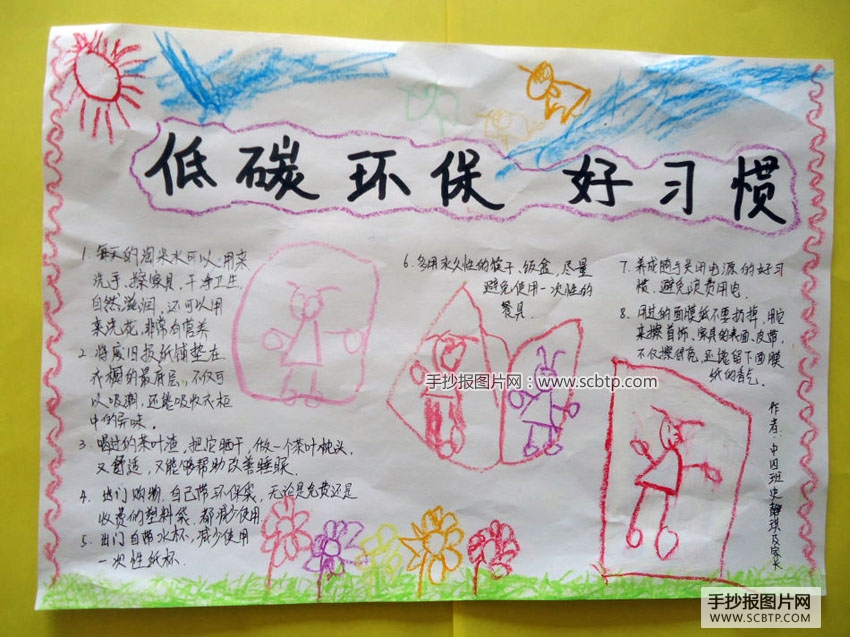 低碳环保 好习惯
1. 每天的淘米水可以用来
洗手、擦家具,干净卫生
自然滋润,还可以用
来浇花,非常有营养
2. 将废旧报纸铺垫在
衣橱的最底层,不仅可
以吸潮,还能吸收衣柜
中的异味。
3. 喝过的茶叶渣,把它晒干,做一个茶叶枕头,
又舒适,又能够帮助改善睡眠。
4. 出门购物,自己带环保袋,无论是免费还是
收费的塑料袋,都减少使用
5. 出门自带水杯,减少使用
一次性纸杯.
6. 多用永久性的筷子、饭盒,尽量
避免使用一次性的
餐具.
7. 养成随手关闭电源的好习
惯,避免浪费用电.
8. 用过的面膜纸不要扔掉,用它
来擦首饰、家具的表面、皮带,
不仅擦得亮,还能留下面膜
纸的香气.
作者:中四班史静琪及家长
手抄报图片网:www.scbtp.com
手抄报图片网
WWW.SCBTP.COM